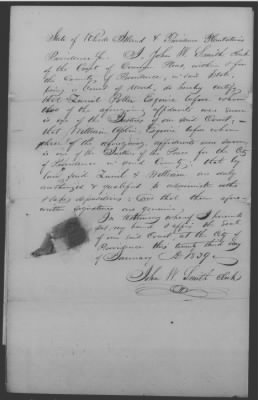 State of Rhode Island & Providence Plantations
Providence Sc. I, John W. Smith Clerk
of the Court of Common Pleas, within & for
the County of Providence, in said State,
being a Court of Record, do hereby certify
that Potter Esquire before whom
of the aforegoing affidavits were sworn
is one of the Justices of our said Court,
that William Aplin, Esquire before whom
of the aforegoing affidavits was sworn
is one of the Justices of the Peace for the City
of Providence in said County, that by
law, said & William are duly
authorized & qualified to administer oaths
& take depositions & that their afore-
written signatures are genuine.
In Testimony whereof I hereunto
set my hand & affix the Seal
of our said Court at the City of
Providence this twenty third day
of January AD 1839
John W. Smith Clerk